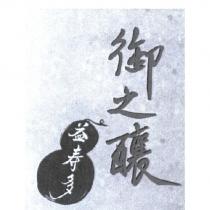 御之釀
益寿多